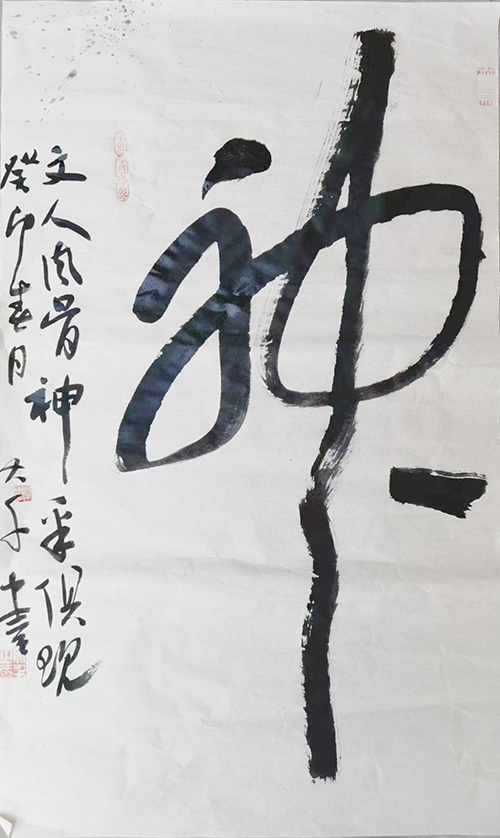 神
文人风骨神采俱现
癸卯春月
大千书